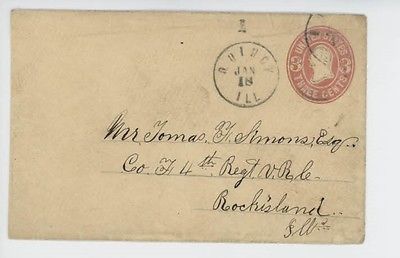 1
QUINCY
JAN
18
ILL
UNITED STATES
THREE CENTS
Mr Tomas. F. Simons, Esq.
Co. F 4th Regt V. R. C.
Rockisland
Ills